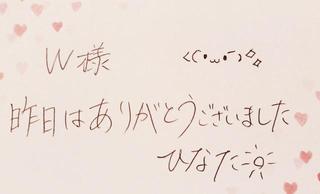 W様 <(•ω•́)✧
昨日はありがとうございました
ひなた☼